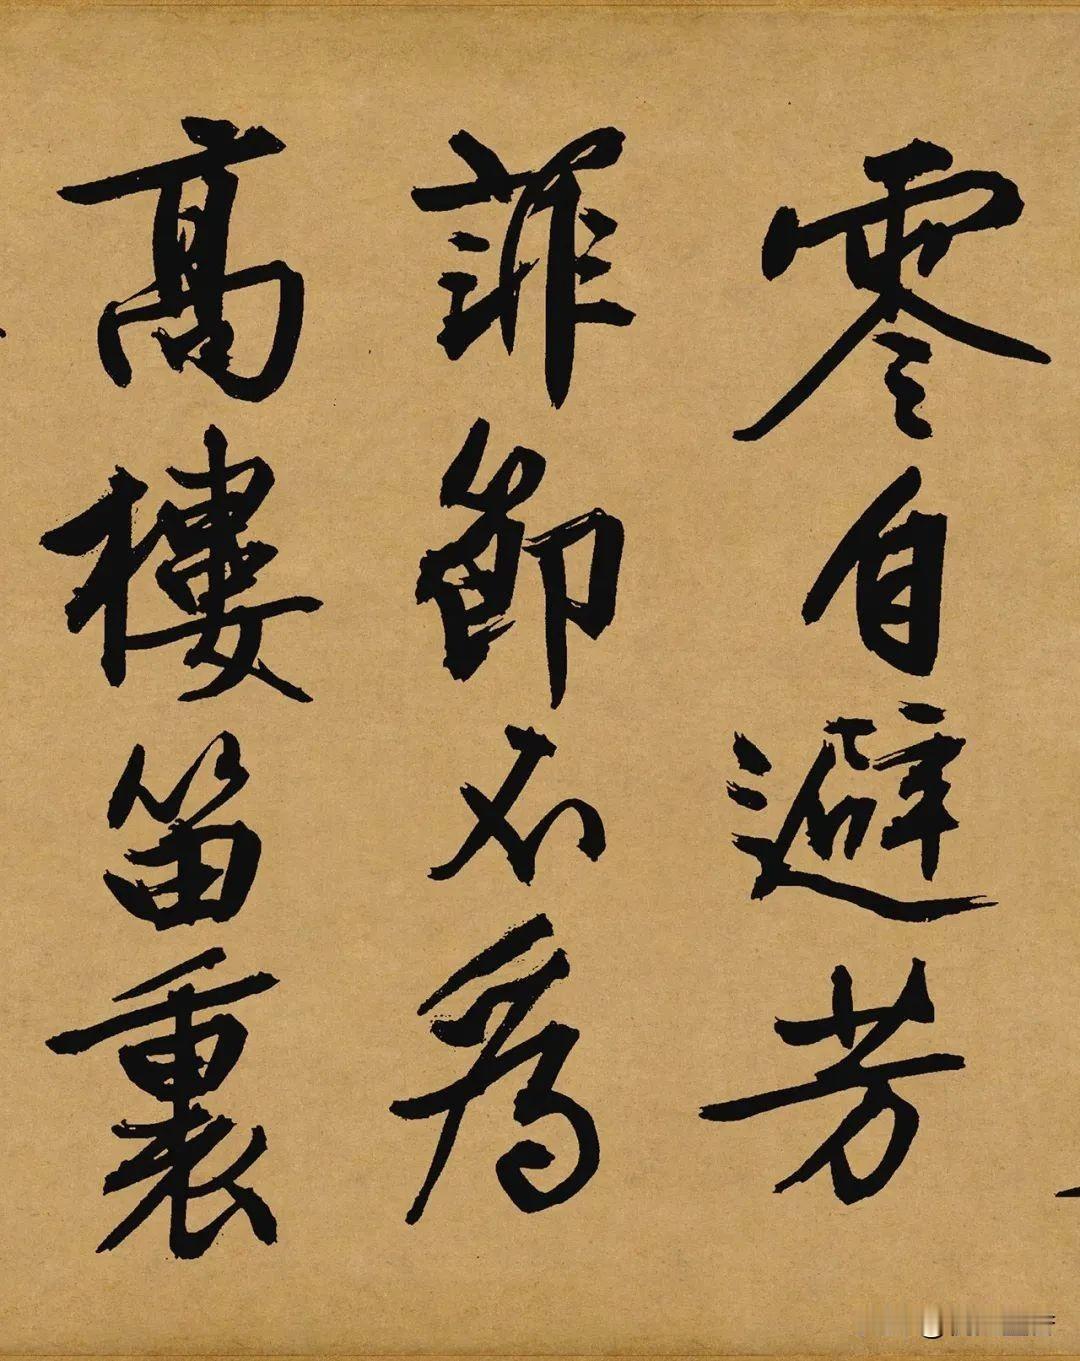 零自避芳
菲節不為
高樓笛裏